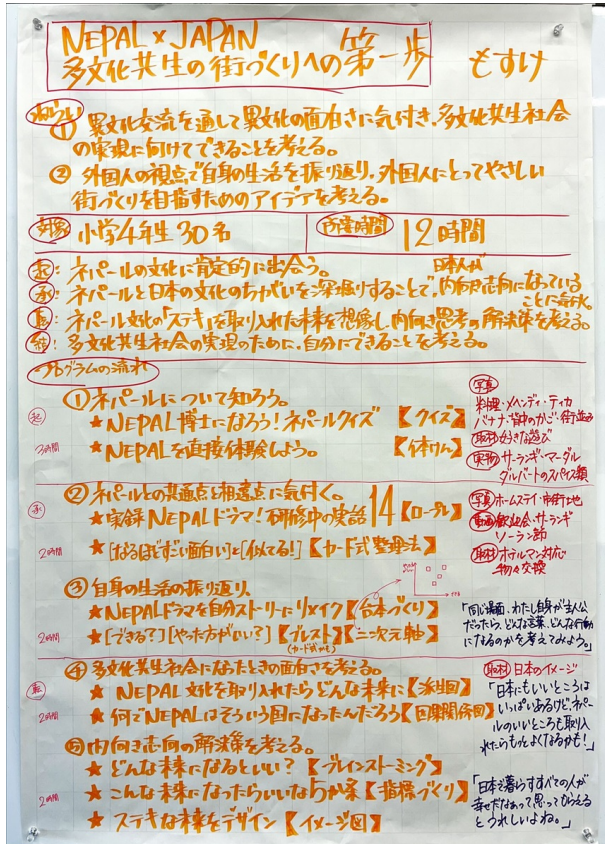 NEPAL × JAPAN
多文化共生の街づくりへの第一歩 もすけ
ねらい
① 異文化交流を通して異文化の面白さに気付き、多文化共生社会
の実現に向けてできることを考える。
② 外国人の視点で自身の生活を振り返り、外国人にとってやさしい
街づくりを目指すためのアイデアを考える。
対象 小学4年生30名 所要時間 12時間
起: ネパールの文化に肯定的に出会う。
承: ネパールと日本の文化のちがいを深掘りすることで、日本人が内向き志向になっている
ことに気付く。
転: ネパール文化の「ステキ」を取り入れた未来を想像し、内向き思考の解決策を考える。
結: 多文化共生社会の実現のために、自分にできることを考える。
プログラムの流れ
起
3時間
①ネパールについて知ろう。
★NEPAL博士になろう!ネパールクイズ 【クイズ】
★NEPALを直接体験しよう。 【体けん】
写真
料理・メンディ・ティカ
バナナ・背中のかご・街並み
取材 好きな遊び
実物 サーランギ・マーダル
ダルバートのスパイス類
承
2時間
②ネパールとの共通点と相違点に気付く。
★実録NEPALドラマ!研修中の実話14【ロープレ】
★[なるほど!すごい!面白い!]と[似てる!]【カード式整理法】
写真 ホームステイ・市街土地
動画 歓迎会・サーランギ
ソーラン節
取材 ホテルマン対応
物々交換
2時間
③ 自身の生活の振り返り、
★NEPALドラマを自分ストーリーにリメイク【台本づくり】
★[できる?][やった方がいい?]【ブレスト】【二次元軸】
(カード式かも)
「同じ場面、わたし自身が主人公
だったら、どんな言葉、どんな行動
になるのかを考えてみよう。」
転
2時間
④多文化共生社会になったときの面白さを考える。
★ NEPAL文化を取り入れたらどんな未来に【派生図】
★ 何でNEPALはそういう国になったんだろう【因果関係図】
取材 日本のイメージ
「日本にもいいところは
いっぱいあるけど、ネパー
ルのいいところも取り入
れたらもっとよくなるかも!」
2時間
⑤内向き志向の解決策を考える。
★ どんな未来になるといい? 【ブレインストーミング】
★ こんな未来になったらいいな5か条【指標づくり】
★ ステキな未来をデザイン【イメージ図】
「日本で暮らすすべての人が
幸せだなぁって思ってもらえる
とうれしいよね。」